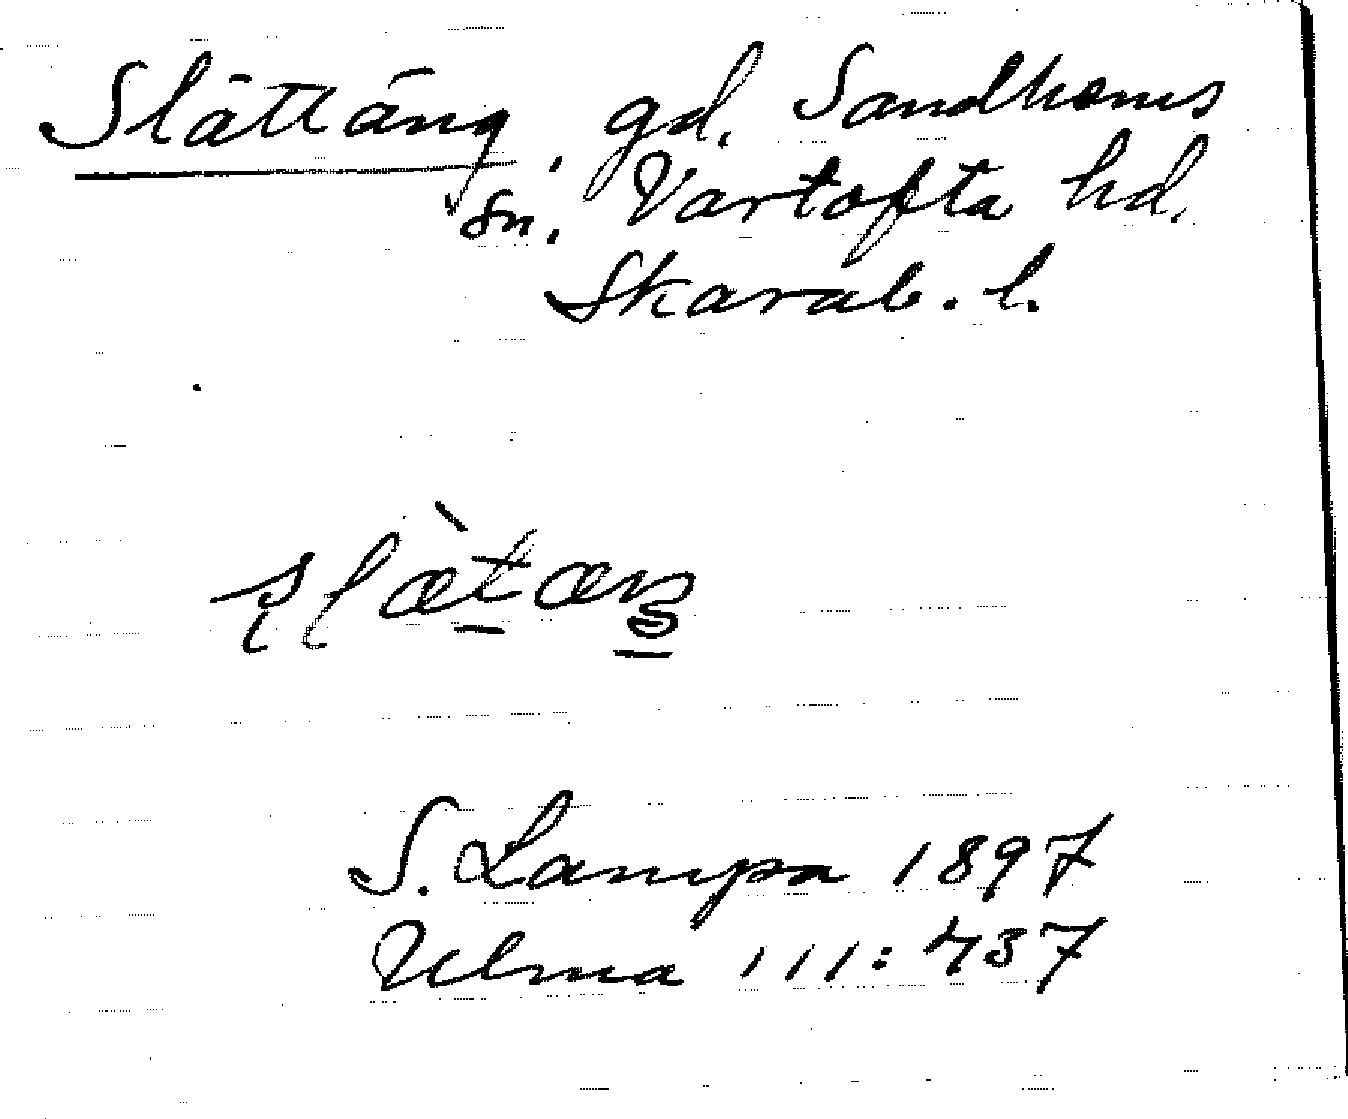 Slättäng, gd. Sandhems
sn. Vartofta hd.
Skarab. l.
slæ̀tæŋ
S. Lampa 1897
Ulma 111:437